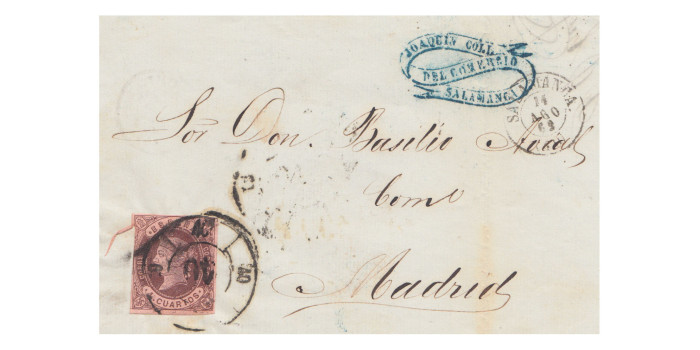 JOAQUIN COLL
DEL COMERCIO
SALAMANCA
SALAMANCA
14
AGO
62
Sor Don Basilio
Come
Madrid
CUARTOS